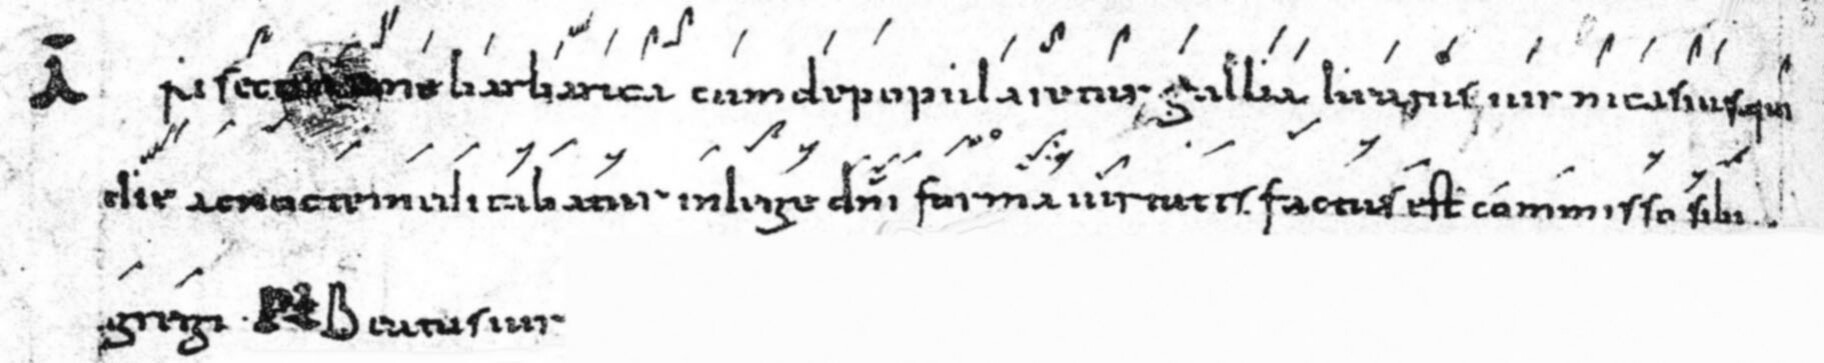 Ā psecutione barbarica cum depopularetur gallia uir nicasius qui
die ac nocte meditabatur in lege dñi forma uirtutis factus est commisso sibi
gregi. Ps Beatus uir